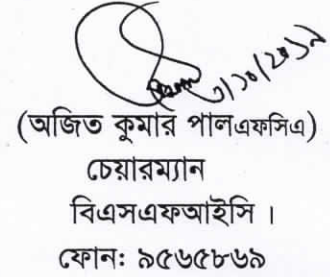 ৩/১০/২০১৯
(অজিত কুমার পালএফসিএ)
চেয়ারম্যান
বিএসএফআইসি ।
ফোনঃ ৯৫৬৫৮৬৯